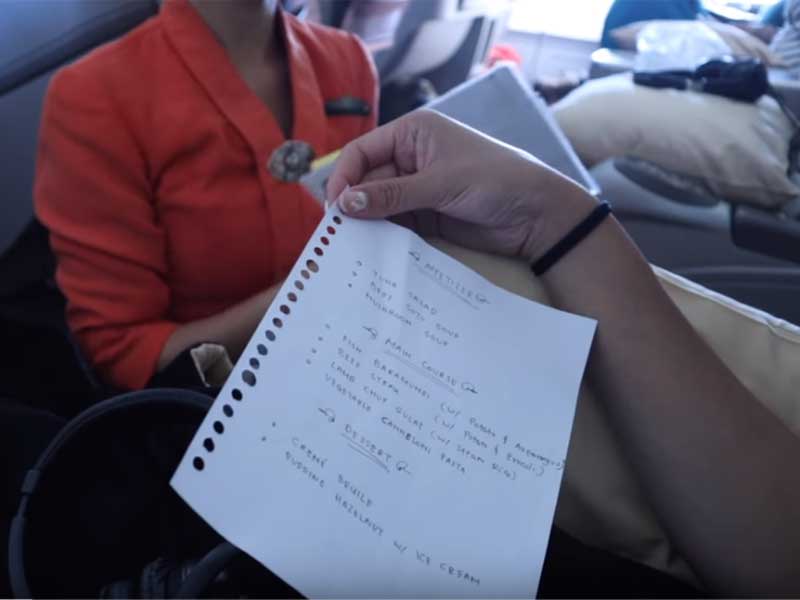 APPETIZER
TUNA SALAD
BEEF SOTO SOUP
MUSHROOM SOUP
MAIN COURSE
FISH BARAMUNDI (W/ Potato & Asparagus)
BEEF STEAK (W/ Potato & Broccoli)
LAMB CHOP GULAI (W/ STEAM RICE)
VEGETABLE CANNELONI PASTA
DESSERT
CREMÉ BRUILE
PUDDING HAZELNUT W/ ICE CREAM